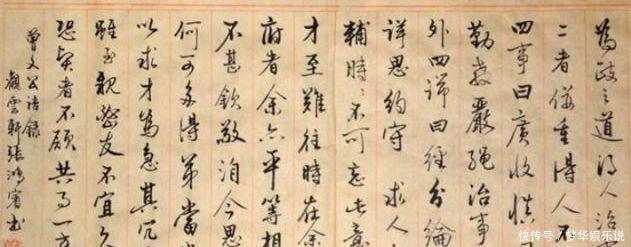 為政之道得人治
二者併重得人不
四事曰廣收慎
勤教嚴繩治事
外四詳曰經分綸
詳思約守 求人
輔時〻不可忘此意
才至難往時在余
府者余亦平等相
不甚欽敬洵今思
何可多得弟當
以求才為急其冗
雖至親密友不宜久
恐賢者不願共事一方
曾文公語錄
觀雲軒張鴻賓書
快传号 / 梦华娱乐说